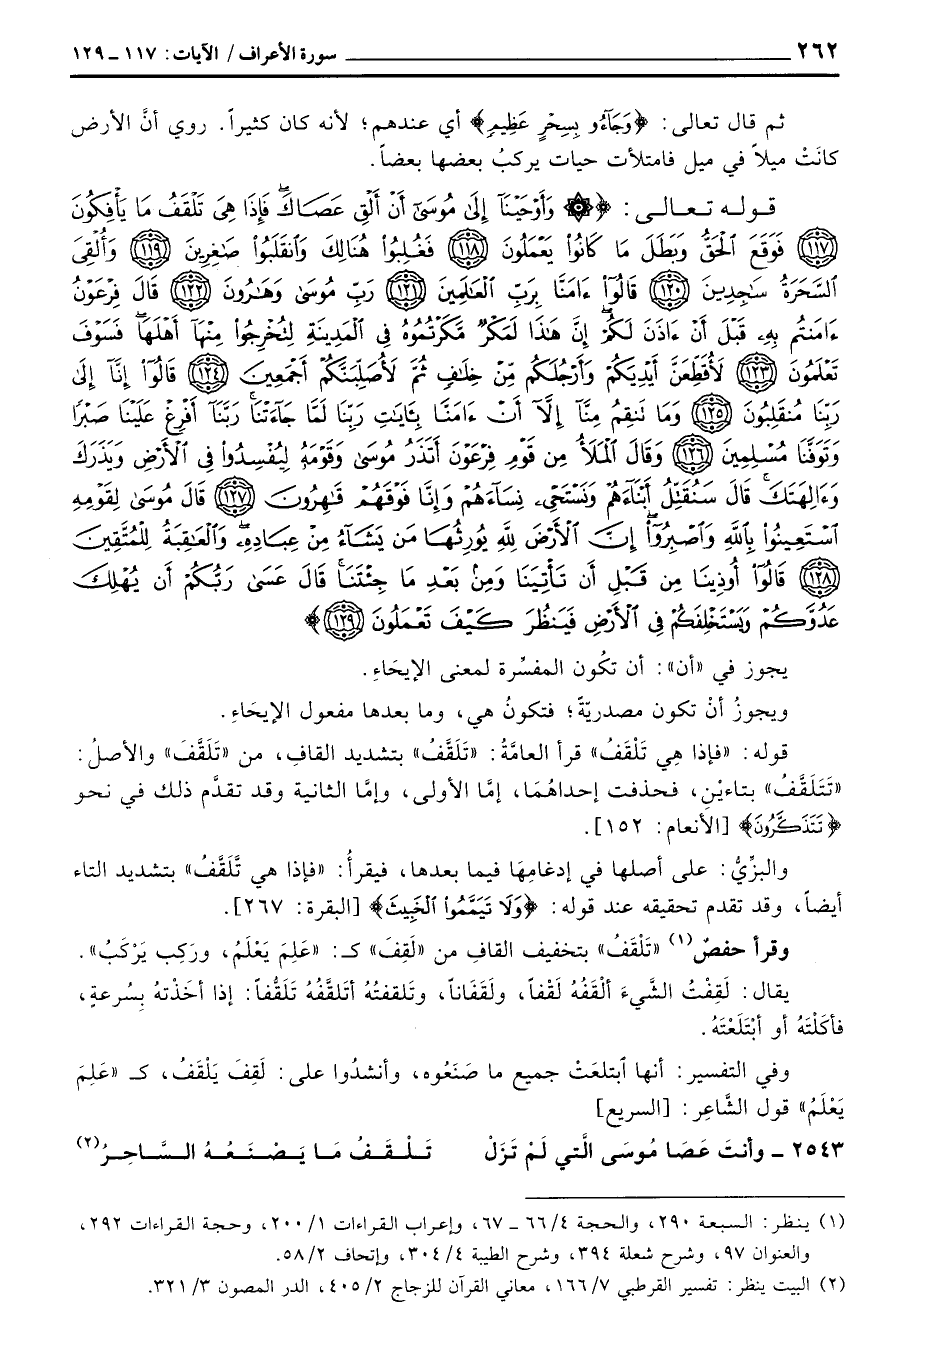 ٢٦٢ ــــــــ سورة الأعراف/ الآيات: ١١٧ ـ ١٢٩
ثم قال تعالى: ﴿وَجَآءُو بِسِحْرٍ عَظِيمٍ﴾ أي عندهم؛ لأنه كان كثيراً. روي أنَّ الأرض
كانَتْ ميلاً في ميل فامتلأت حيات يركبُ بعضها بعضاً.
قوله تعالى: ﴿۞ وَأَوْحَيْنَآ إِلَىٰ مُوسَىٰٓ أَنْ أَلْقِ عَصَاكَۖ فَإِذَا هِىَ تَلْقَفُ مَا يَأْفِكُونَ
(١١٧) فَوَقَعَ ٱلْحَقُّ وَبَطَلَ مَا كَانُوا۟ يَعْمَلُونَ (١١٨) فَغُلِبُوا۟ هُنَالِكَ وَٱنقَلَبُوا۟ صَٰغِرِينَ (١١٩) وَأُلْقِىَ
ٱلسَّحَرَةُ سَٰجِدِينَ (١٢٠) قَالُوٓا۟ ءَامَنَّا بِرَبِّ ٱلْعَٰلَمِينَ (١٢١) رَبِّ مُوسَىٰ وَهَٰرُونَ (١٢٢) قَالَ فِرْعَوْنُ
ءَامَنتُم بِهِۦ قَبْلَ أَنْ ءَاذَنَ لَكُمْۖ إِنَّ هَٰذَا لَمَكْرٌ مَّكَرْتُمُوهُ فِى ٱلْمَدِينَةِ لِتُخْرِجُوا۟ مِنْهَآ أَهْلَهَاۖ فَسَوْفَ
تَعْلَمُونَ (١٢٣) لَأُقَطِّعَنَّ أَيْدِيَكُمْ وَأَرْجُلَكُم مِّنْ خِلَٰفٍ ثُمَّ لَأُصَلِّبَنَّكُمْ أَجْمَعِينَ (١٢٤) قَالُوٓا۟ إِنَّآ إِلَىٰ
رَبِّنَا مُنقَلِبُونَ (١٢٥) وَمَا تَنقِمُ مِنَّآ إِلَّآ أَنْ ءَامَنَّا بِـَٔايَٰتِ رَبِّنَا لَمَّا جَآءَتْنَاۚ رَبَّنَآ أَفْرِغْ عَلَيْنَا صَبْرًا
وَتَوَفَّنَا مُسْلِمِينَ (١٢٦) وَقَالَ ٱلْمَلَأُ مِن قَوْمِ فِرْعَوْنَ أَتَذَرُ مُوسَىٰ وَقَوْمَهُۥ لِيُفْسِدُوا۟ فِى ٱلْأَرْضِ وَيَذَرَكَ
وَءَالِهَتَكَۚ قَالَ سَنُقَتِّلُ أَبْنَآءَهُمْ وَنَسْتَحْىِۦ نِسَآءَهُمْ وَإِنَّا فَوْقَهُمْ قَٰهِرُونَ (١٢٧) قَالَ مُوسَىٰ لِقَوْمِهِ
ٱسْتَعِينُوا۟ بِٱللَّهِ وَٱصْبِرُوٓا۟ۖ إِنَّ ٱلْأَرْضَ لِلَّهِ يُورِثُهَا مَن يَشَآءُ مِنْ عِبَادِهِۦۖ وَٱلْعَٰقِبَةُ لِلْمُتَّقِينَ
(١٢٨) قَالُوٓا۟ أُوذِينَا مِن قَبْلِ أَن تَأْتِيَنَا وَمِنۢ بَعْدِ مَا جِئْتَنَاۚ قَالَ عَسَىٰ رَبُّكُمْ أَن يُهْلِكَ
عَدُوَّكُمْ وَيَسْتَخْلِفَكُمْ فِى ٱلْأَرْضِ فَيَنظُرَ كَيْفَ تَعْمَلُونَ (١٢٩)﴾
يجوز في «أن»: أن تكُون المفسِّرة لمعنى الإيحَاءِ.
ويجوزُ أنْ تكون مصدريّةً؛ فتكونُ هي، وما بعدها مفعول الإيحَاءِ.
قوله: «فإذا هِي تَلْقَفُ» قرأ العامَّةُ: «تَلَقَّفُ» بتشديد القافِ، من «تَلَقَّفَ» والأصلُ:
«تَتَلَقَّفُ» بتاءيْنِ، فحذفت إحداهُمَا، إمَّا الأولى، وإمَّا الثانية وقد تقدَّم ذلك في نحو
﴿تَتَذَكَّرُونَ﴾ [الأنعام: ١٥٢].
والبزِّيُّ: على أصلها في إدغامِهَا فيما بعدها، فيقرأُ: «فإذا هي تَّلَقَّفُ» بتشديد التاء
أيضاً، وقد تقدم تحقيقه عند قوله: ﴿وَلَا تَيَمَّمُوا ٱلْخَبِيثَ﴾ [البقرة: ٢٦٧].
وقرأ حفصٌ(١) «تَلْقَفُ» بتخفيف القافِ من «لَقِفَ» كـ: «عَلِمَ يَعْلَمُ، ورَكِب يَرْكَبُ».
يقال: لَقِفْتُ الشَّيءَ ألْقَفُهُ لَقْفاً، ولَقَفَاناً، وتَلقفتُهُ أتَلقَّفُهُ تَلَقُّفاً: إذا أخَذْتهُ بِسُرعةٍ،
فأكَلْتَهُ أو ٱبْتَلَعْتَهُ.
وفي التفسير: أنها ٱبتلعَتْ جميع ما صَنَعُوه، وأنشدُوا على: لَقِفَ يَلْقَفُ، كـ «عَلِمَ
يَعْلَمُ» قول الشَّاعِر: [السريع]
٢٥٤٣ ـ وأنتَ عَصَا مُوسَى الَّتي لَمْ تَزَلْ تَلْقَفُ مَا يَصْنَعُهُ السَّاحِرُ(٢)
(١) ينظر: السبعة ٢٩٠، والحجة ٦٦/٤ ـ ٦٧، وإعراب القراءات ٢٠٠/١، وحجة القراءات ٢٩٢،
والعنوان ٩٧، وشرح شعلة ٣٩٤، وشرح الطيبة ٣٠٤/٤، وإتحاف ٥٨/٢.
(٢) البيت ينظر: تفسير القرطبي ١٦٦/٧، معاني القرآن للزجاج ٤٠٥/٢، الدر المصون ٣٢١/٣.